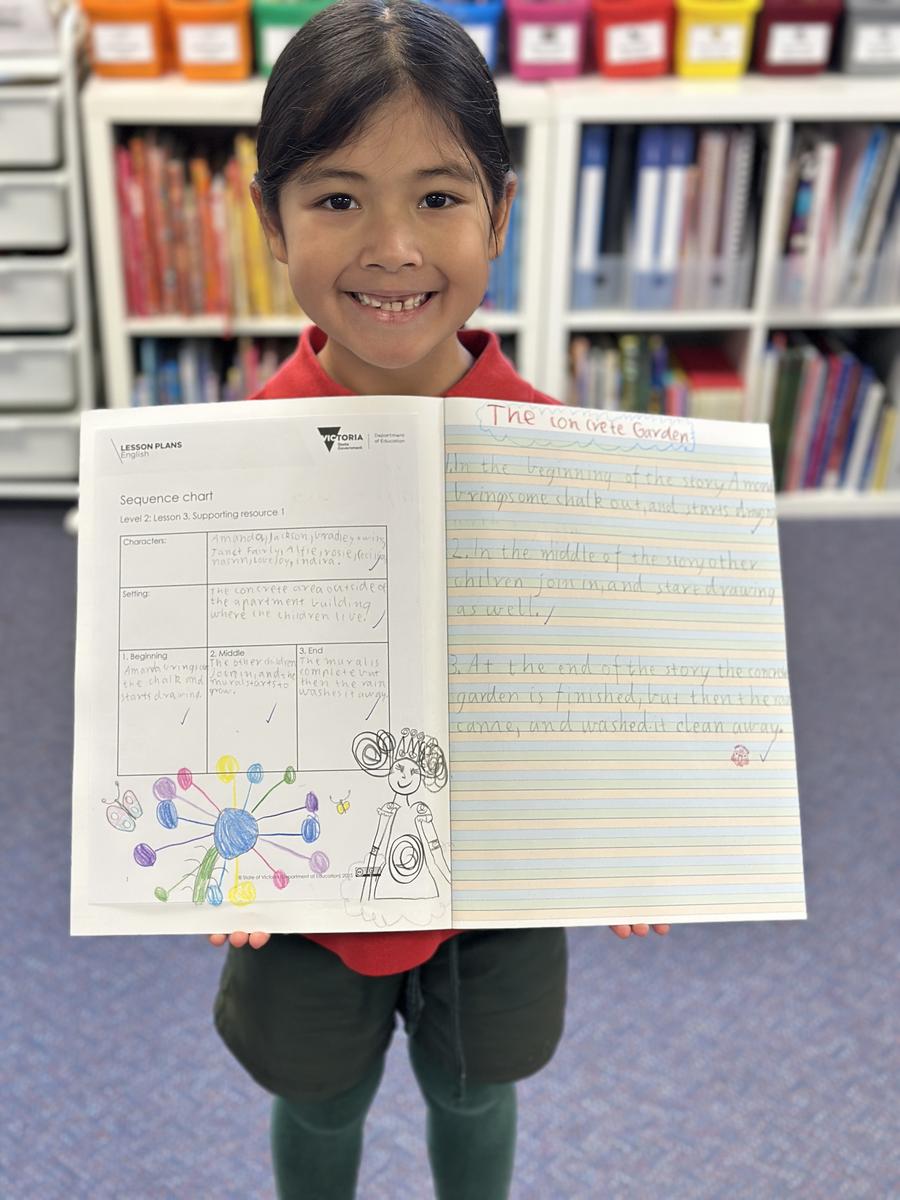 LESSON PLANS
English
VICTORIA
State
Government
Department
of Education
Sequence chart
Level 2: Lesson 3. Supporting resource 1
Characters:
Amanda, Jackson, bradley, ewing
Janet Fairly, Alfie, rosie,
nasrin, Lovejoy, indira.
Setting:
the concrete area outside of
the apartment building
where the children live.
1. Beginning
Amanda brings out
the chalk and
starts drawing
2. Middle
The other children
Join in, and the
mural starts to
grow.
3. End
The mural is
complete but
then the rain
washes it away.
1
© State of Victoria (Department of Education)
The concrete Garden
1. In the beginning of the story, Aman
brings some chalk out, and starts
2. In the middle of the story other
chilren join in, and stare drawing
as well.
3. At the end of the story the concrete
garden is finished, but then the
came, and washed it clean away.